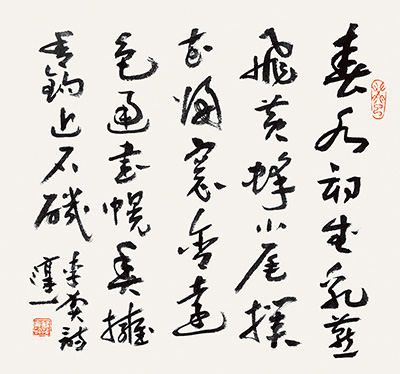 春水初生乳燕
飛黃蜂小尾撲
花歸窗含遠
色通書幌魚擁
香鉤近石磯
李賀詩